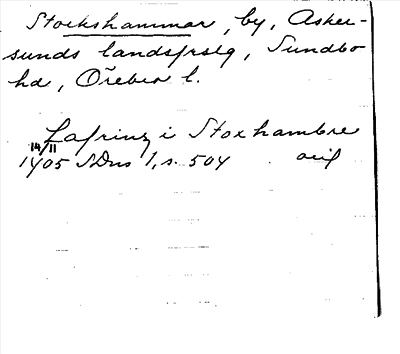 Stockshammar, by, Asker-
sunds landsfrslg, Sundbo
hd, Örebro l.
Lafrinz i Stoxhambre
14/11
1405 SDns 1, s. 504 orig